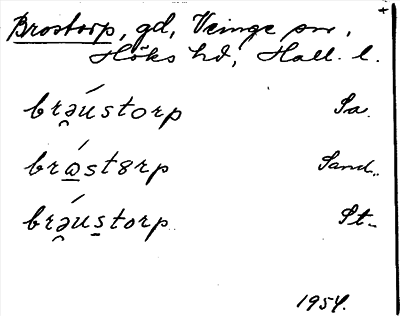 Brostorp, gd, Veinge sn,
Höks hd, Hall. l.
brə̯́ustorp Sa.
brώ̲st8rp Sand..
brə̯́us̲torp St-
1954.